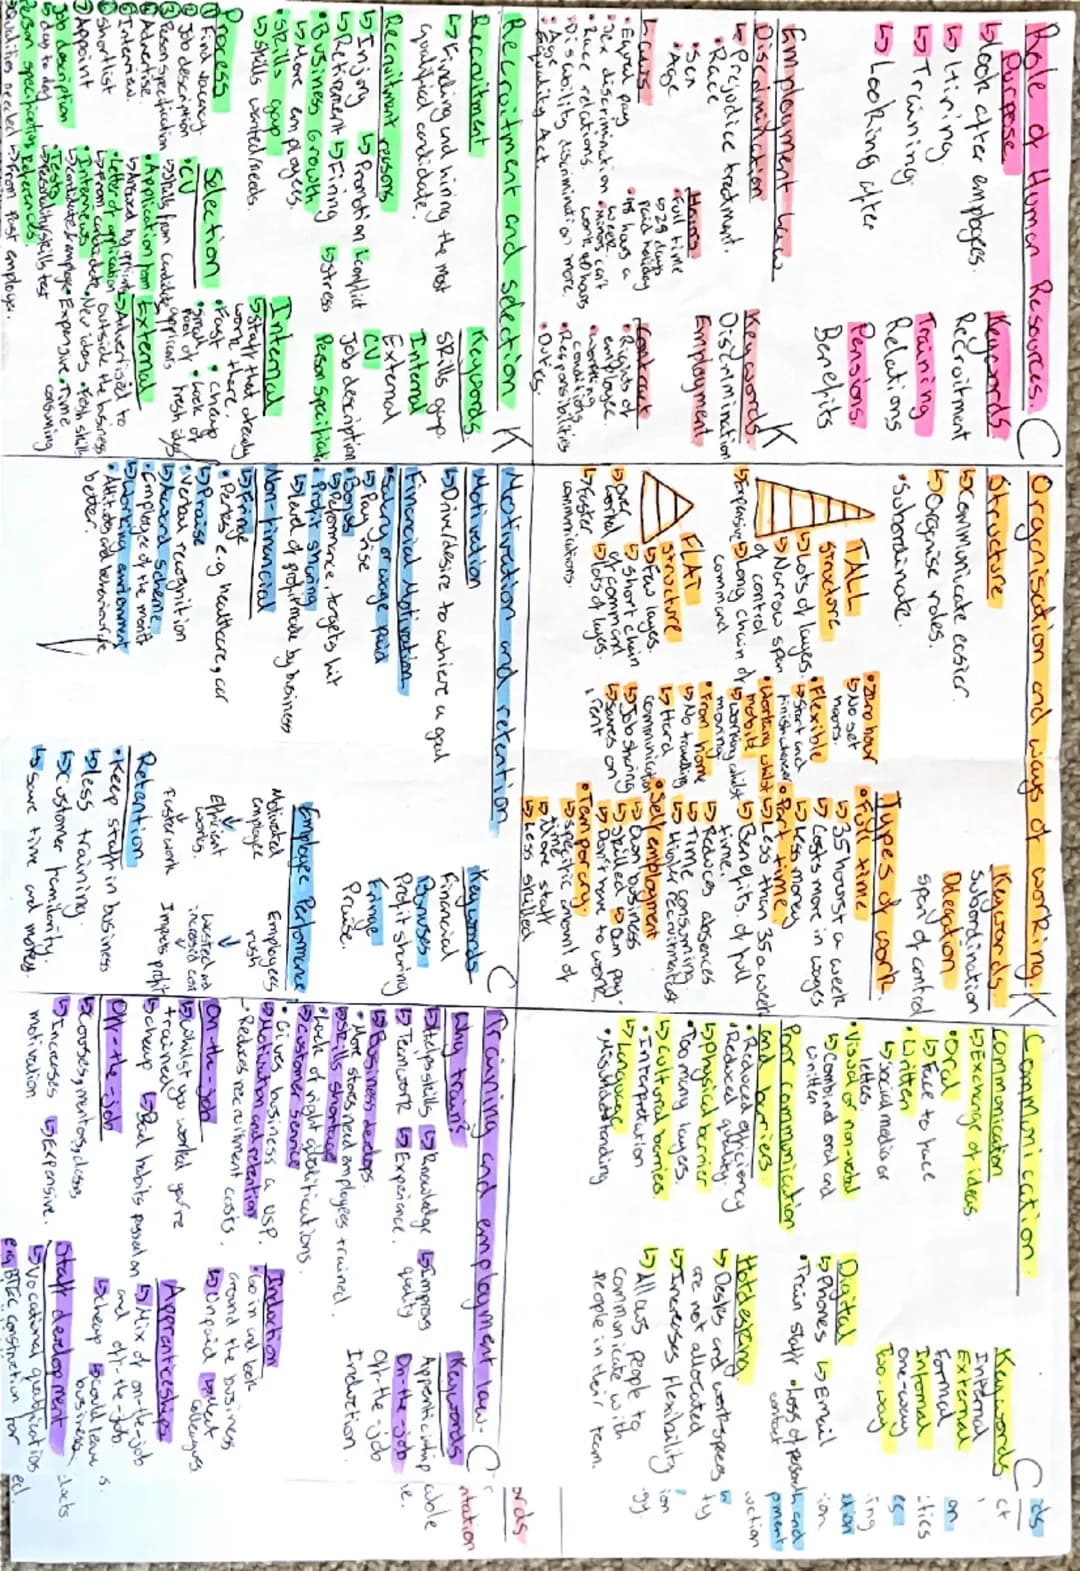 Role of Human Resources.
Purpose
↳ Look after employees.
↳ Hiring.
↳ Training.
↳ Looking after
Keywords
Recruitment
Training
Relations
Pensions.
Benefits
Employment Law
Discrimination
↳ Prejudice treatment.
• Race
• Sex
• Age
Laws
• Equal pay
• Sex discrimination
• Race relations.
• Disability discrimination
• Age
• Equality Act.
Hours
• Full time
↳ 28 days paid holiday
• 48 hours a week.
• Minors can't work 40 hours or more.
Keywords.
Discrimination
Employment
Contract
• Rights of employee.
• Working conditions
• Responsibilities
• Duties.
K
Recruitment and selection
Recruitment
↳ Finding and hiring the most
qualified candidate.
Recruitment reasons
↳ Injury ↳ Promotion
↳ Retirement ↳ Firing
• Business Growth
↳ More employees.
• Skills gap
↳ Skills wanted/needs.
Keywords.
Skills gap.
Internal
External
CV
Job description
Process
① Find vacancy
② Job description
③ Person specification
④ Advertise.
⑤ Interview.
⑥ Shortlist
⑦ Appoint
Job description
↳ day to day
Selection
• CV
↳ Skills from candidate
• Application form
• Letter of application
↳ From candidate
• Interviews
• Tests
↳ Personality/skills test
References.
↳ From past employer.
Internal
↳ Staff that already
work there.
• Fast • cheap
• Small pool of applicants
External
↳ Advertised to
outside the business
• New ideas • Fresh skills
• Expensive • Time consuming
C
Organisation and ways of working.
Structure
↳ Communicate easier.
↳ Organise roles.
• Subordinate.
Keywords.
Subordination
Delegation
Span of control
TALL
Structure
↳ Lots of layers.
↳ Narrow span
of control
↳ Long chain of
command
↳ Expensive
FLAT
Structure
↳ Few layers.
↳ Short chain
of command
↳ Faster
communications.
Types of work
• Full time
↳ 35 hours + a week
↳ Costs more in wages
↳ Less money
• Part time.
↳ Less than 35 a week
↳ Benefits of full
time.
↳ Reduces absences
↳ Time consuming
↳ Higher recruitment cost
• Self employment
↳ Own business
↳ Skilled ↳ Own pay.
↳ Don't have to work
• Temporary.
↳ Specific amount of
time
↳ More staff
↳ Less skilled
• Zero hour
↳ No set
hours.
• Flexible
↳ Start and
finish whenever
• Working whilst
mobile
↳ Working whilst
moving
• From home
↳ No travelling
↳ Hard
communication
↳ Job sharing
↳ Saves on
rent
K
Motivation and retention
Motivation
↳ Drive/desire to achieve a goal
Financial Motivation
• Salary or wage paid
↳ Pay rise
• Bonus
↳ Performance, targets hit
• Profit sharing
↳ Level of profit made by business
Non-financial
• Fringe
↳ Perks e.g healthcare, car
• Praise
↳ Verbal recognition
• Award scheme.
↳ Employee of the month
• Working environment
• Attitude and behaviour is
better.
Keywords
Financial
Bonuses
Profit sharing
Fringe
Praise.
Employee Performance
Motivated
employee
Efficient
works.
Faster work
Employees
rush
Wasted and
increased cost
Impacts profit
Retention
• Keep staff in business
↳ Less training.
↳ Customer familiarity.
↳ Save time and money.
C
Communication
Communication
↳ Exchange of ideas.
• Oral
↳ Face to face
• Written
↳ Social media or
letters.
• Visual or non-verbal
↳ Combined oral and
written
Poor communication
and barriers
• Reduced efficiency
• Reduced quality.
↳ Physical barrier
• Too many layers.
↳ Cultural barriers.
• Interpretation
↳ Language
• Misunderstanding
Keywords
Internal
External
Formal
Informal
One-way
Two-way
Digital
↳ Phones ↳ Email
• Train staff • Loss of personal
contact
Hotdesking
↳ Desks and workspaces
are not allocated
↳ Increases flexibility
↳ Allows people to
communicate with
people in their team.
C
Training and employment law.
Why train?
↳ Helps skills ↳ Knowledge ↳ Improves
quality
↳ Teamwork ↳ Experience.
• Business develops.
• More stores need employees.
• Skills shortage
• Lack of right abilities trained.
• Customer service
• Gives business a USP.
↳ Motivation and retention
• Reduces recruitment costs.
On-the-job
↳ Whilst you worked you're
trained
↳ Cheap ↳ Bad habits passed on
Off-the-job
↳ Courses, mentors, classes
↳ Increases
motivation
↳ Expensive.
Keywords
Apprenticeship
On-the-job
Off-the-job
Induction.
Induction
• Go in and look
around the business
↳ Unpaid ↳ Meet
colleagues
Apprenticeships
↳ Mix of on-the-job
and off-the-job
↳ Cheap ↳ Could leave
business
Staff development
↳ Vocational qualifications
e.g BTEC construction
C